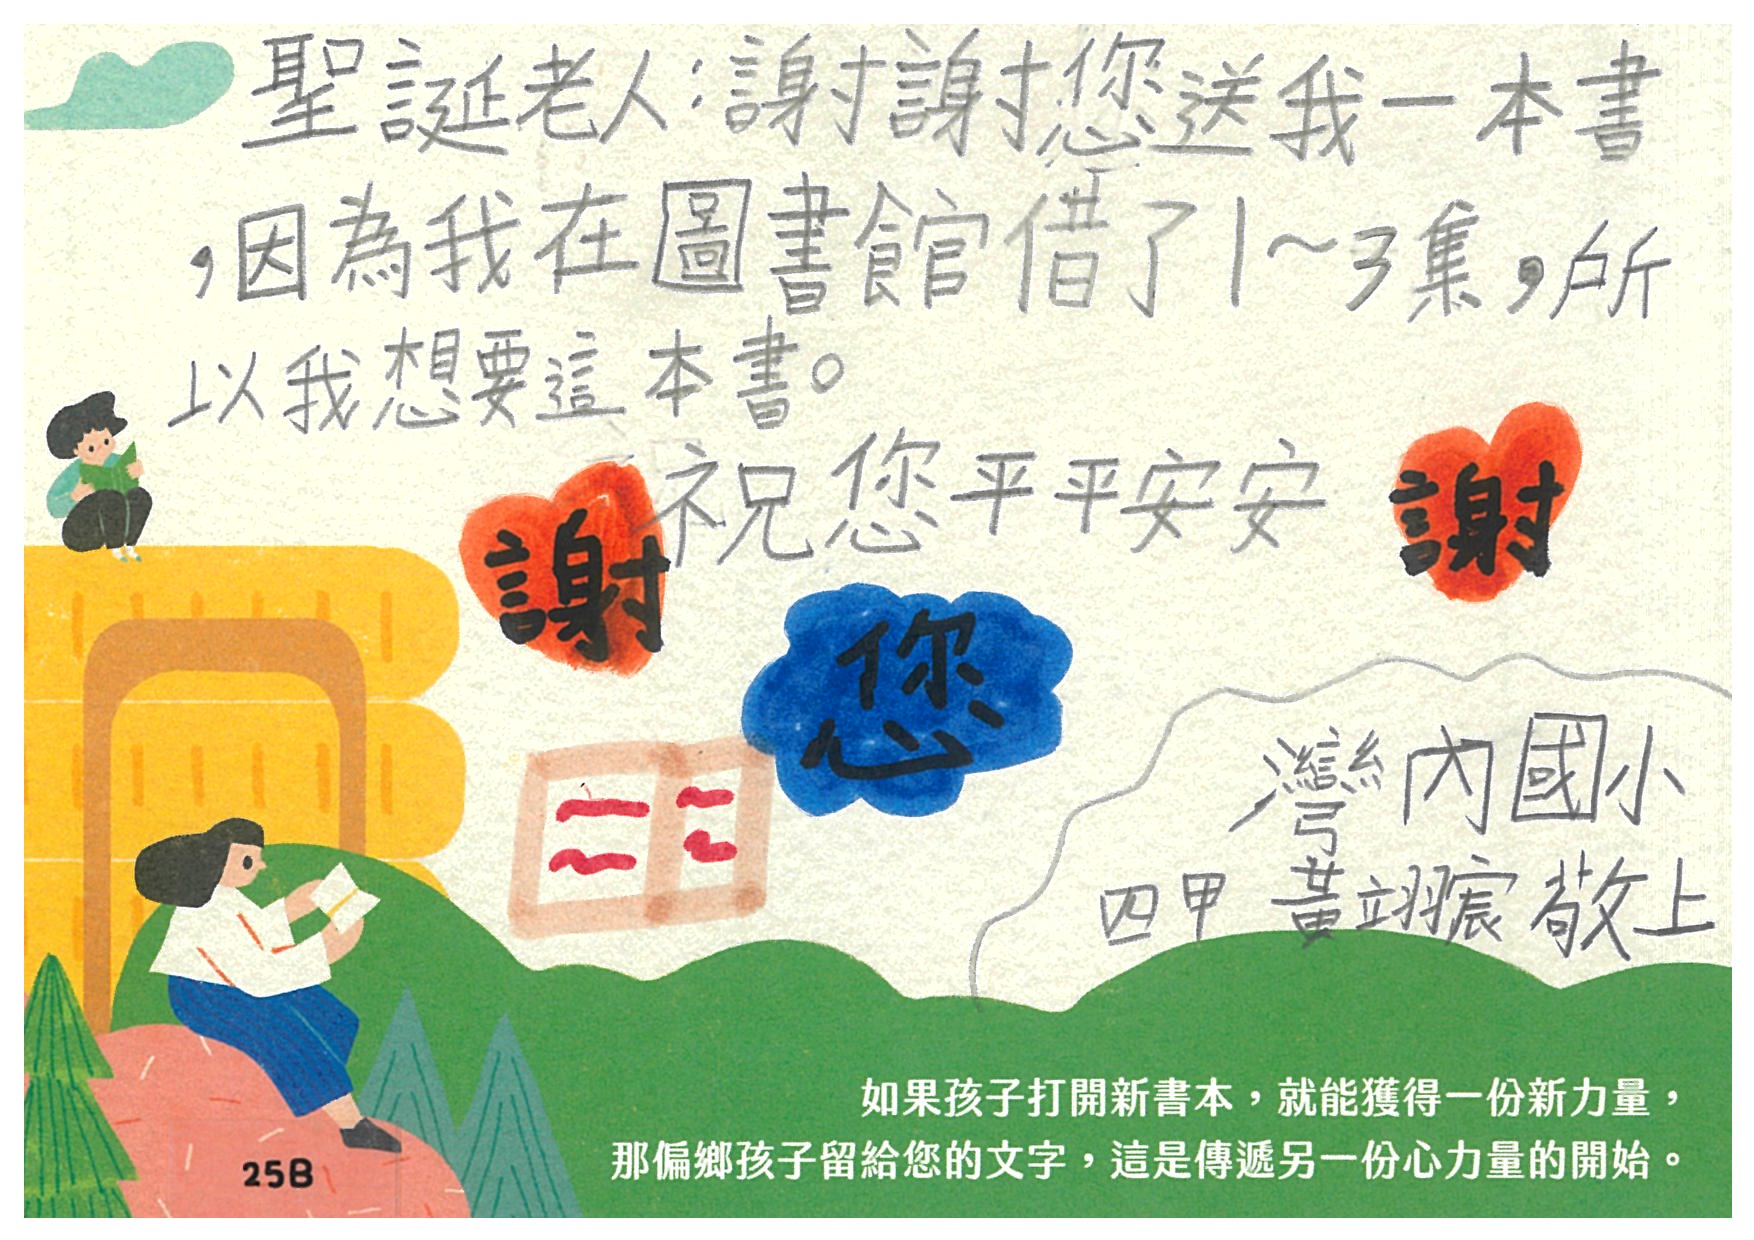 聖誕老人:謝謝您送我一本書
,因為我在圖書館借了1~3集,所
以我想要這本書。
祝您平平安安
謝
謝
您
灣內國小
四甲 黃翊宸 敬上
如果孩子打開新書本,就能獲得一份新力量,
那偏鄉孩子留給您的文字,這是傳遞另一份心力量的開始。
25B